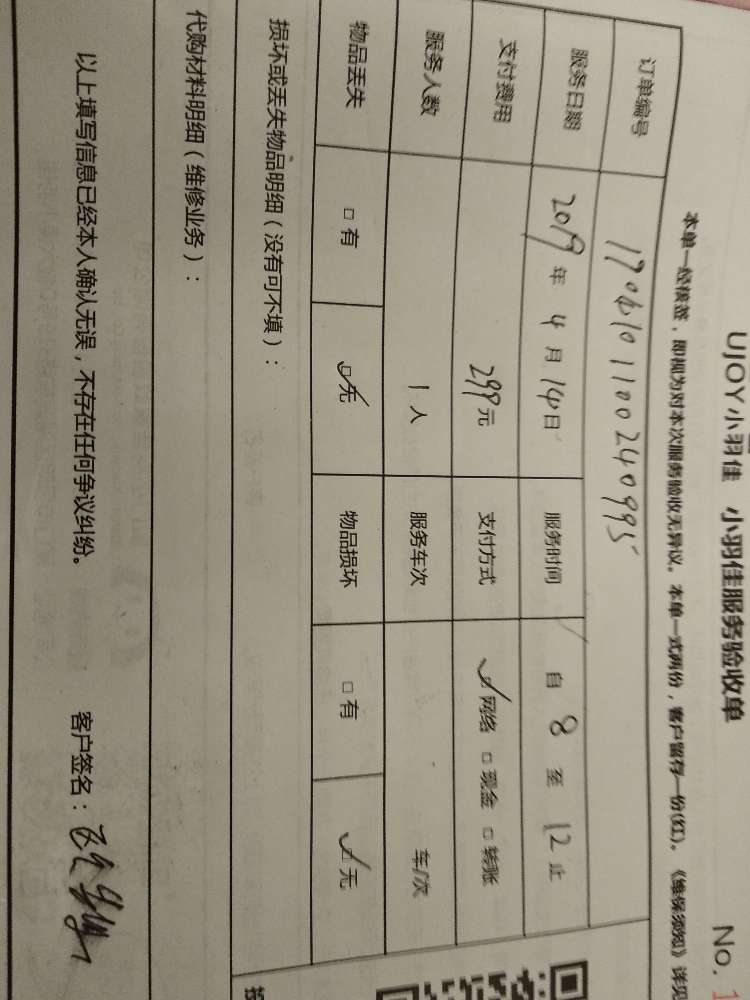 UJOY小羽佳 小羽佳服务验收单
No. 1
本单一经核签，即视为对本次服务验收无异议。本单一式两份，客户留存一份(红)。《维保须知》详见
订单编号 1904101100240995
服务日期 2019年4月14日 服务时间 自 8 至 12 止
支付费用 299元 支付方式 ☑网络 □现金 □转账
服务人数 1人 服务车次 车/次
物品丢失 □有 ☑无 物品损坏 □有 ☑无
损坏或丢失物品明细（没有可不填）：
代购材料明细（维修业务）：
以上填写信息已经本人确认无误，不存在任何争议纠纷。 客户签名：